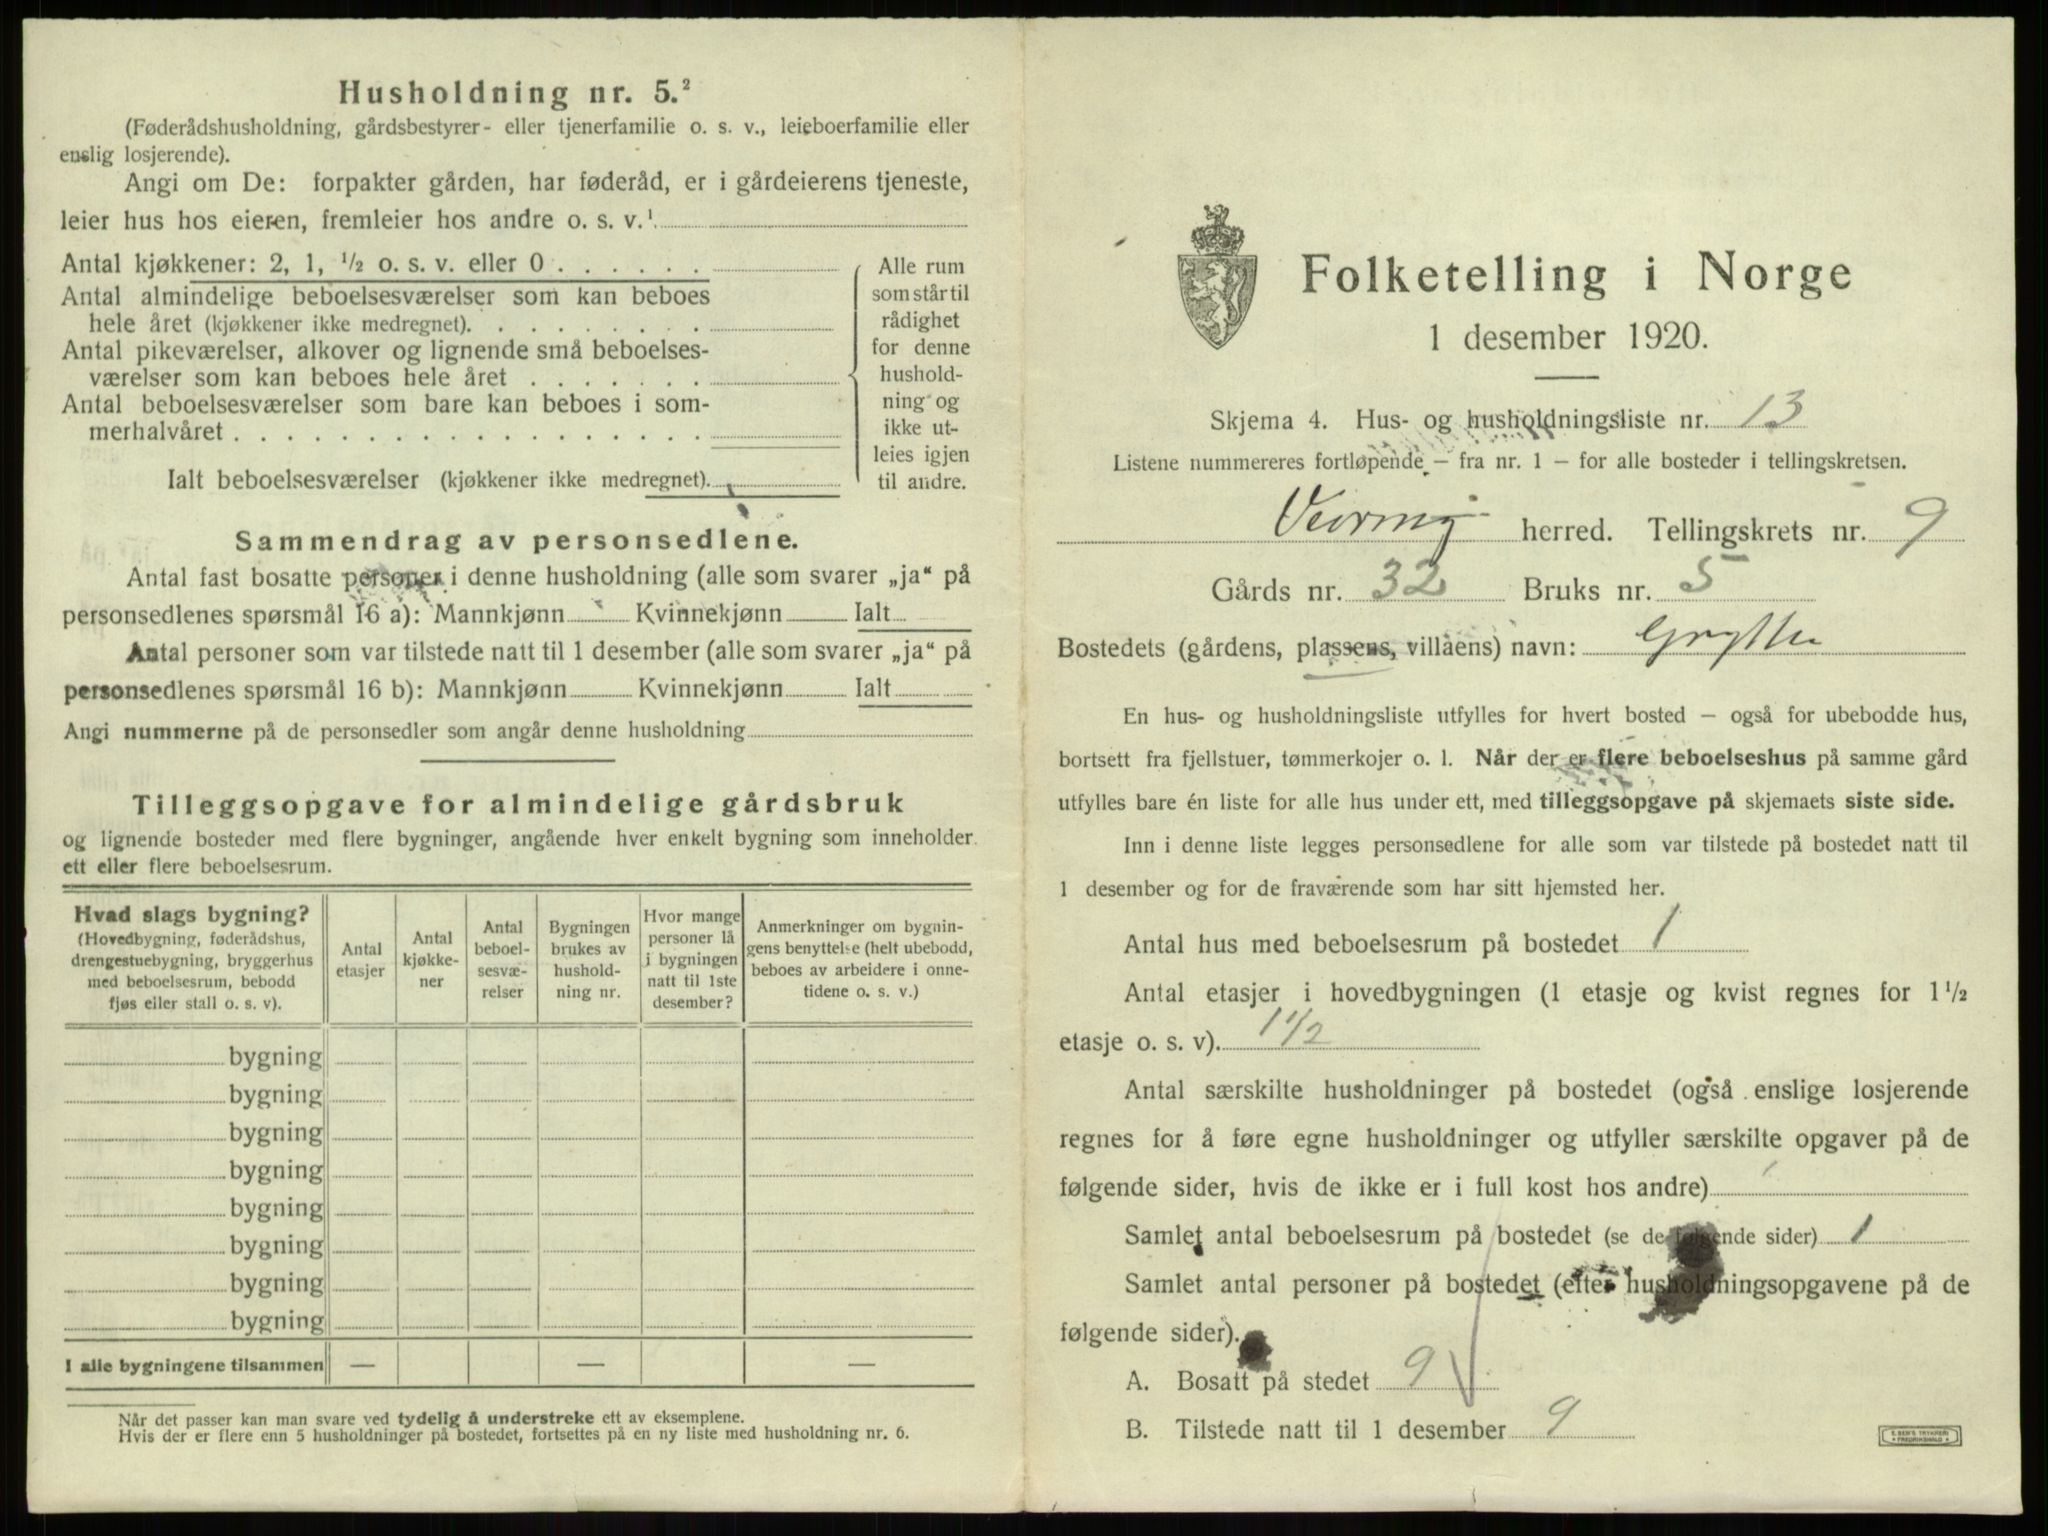 Husholdning nr. 5.²
(Føderådshusholdning, gårdsbestyrer- eller tjenerfamilie o. s. v., leieboerfamilie eller
enslig losjerende).
Angi om De: forpakter gården, har føderåd, er i gårdeierens tjeneste,
leier hus hos eieren, fremleier hos andre o. s. v.¹
Antal kjøkkener: 2, 1, ½ o. s. v. eller 0 . . . . . .
Antal almindelige beboelsesværelser som kan beboes
hele året (kjøkkener ikke medregnet). . . . . . . . .
Antal pikeværelser, alkover og lignende små beboelses-
værelser som kan beboes hele året . . . . . . .
Antal beboelsesværelser som bare kan beboes i som-
merhalvåret . . . . . . . . . . . . . . . . . .
Ialt beboelsesværelser (kjøkkener ikke medregnet).
Alle rum
som står til
rådighet
for denne
hushold-
ning og
ikke ut-
leies igjen
til andre.
Sammendrag av personsedlene.
Antal fast bosatte personer i denne husholdning (alle som svarer „ja“ på
personsedlenes spørsmål 16 a): Mannkjønn Kvinnekjønn Ialt
Antal personer som var tilstede natt til 1 desember (alle som svarer „ja“ på
personsedlenes spørsmål 16 b): Mannkjønn Kvinnekjønn Ialt
Angi nummerne på de personsedler som angår denne husholdning
Tilleggsopgave for almindelige gårdsbruk
og lignende bosteder med flere bygninger, angående hver enkelt bygning som inneholder
ett eller flere beboelsesrum.
Hvad slags bygning?
(Hovedbygning, føderådshus,
drengestuebygning, bryggerhus
med beboelsesrum, bebodd
fjøs eller stall o. s. v).
Antal
etasjer
Antal
kjøkke-
ner
Antal
beboel-
sesvæ-
relser
Bygningen
brukes av
hushold-
ning nr.
Hvor mange
personer lå
i bygningen
natt til 1ste
desember?
Anmerkninger om bygnin-
gens benyttelse (helt ubebodd,
beboes av arbeidere i onne-
tidene o. s. v.)
bygning
bygning
bygning
bygning
bygning
bygning
bygning
bygning
I alle bygningene tilsammen — — —
Når det passer kan man svare ved tydelig å understreke ett av eksemplene.
Hvis der er flere enn 5 husholdninger på bostedet, fortsettes på en ny liste med husholdning nr. 6.
Folketelling i Norge
1 desember 1920.
Skjema 4. Hus- og husholdningsliste nr. 13
Listene nummereres fortløpende – fra nr. 1 – for alle bosteder i tellingskretsen.
Vevring herred. Tellingskrets nr. 9
Gårds nr. 32 Bruks nr. 5
Bostedets (gårdens, plassens, villaens) navn: Grytte
En hus- og husholdningsliste utfylles for hvert bosted – også for ubebodde hus,
bortsett fra fjellstuer, tømmerkojer o. l. Når der er flere beboelseshus på samme gård
utfylles bare én liste for alle hus under ett, med tilleggsopgave på skjemaets siste side.
Inn i denne liste legges personsedlene for alle som var tilstede på bostedet natt til
1 desember og for de fraværende som har sitt hjemsted her.
Antal hus med beboelsesrum på bostedet 1
Antal etasjer i hovedbygningen (1 etasje og kvist regnes for 1½
etasje o. s. v). 1 1/2
Antal særskilte husholdninger på bostedet (også enslige losjerende
regnes for å føre egne husholdninger og utfyller særskilte opgaver på de
følgende sider, hvis de ikke er i full kost hos andre)
Samlet antal beboelsesrum på bostedet (se de følgende sider) 1
Samlet antal personer på bostedet (efter husholdningsopgavene på de
følgende sider).
A. Bosatt på stedet 9
B. Tilstede natt til 1 desember 9
E. SEM'S TRYKKERI
FREDRIKSHALD